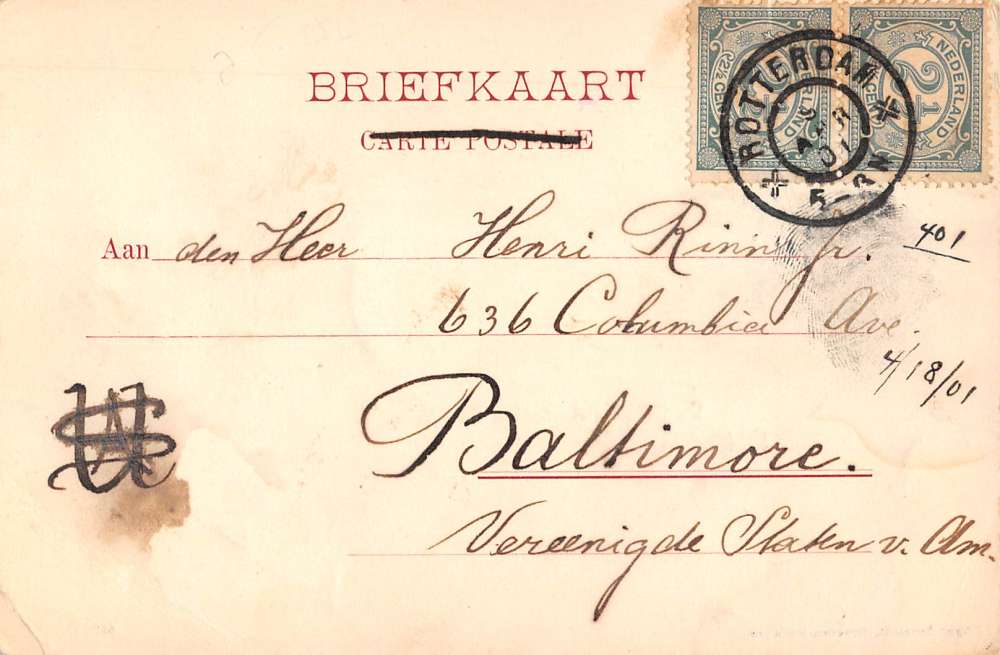 BRIEFKAART
CARTE POSTALE
NEDERLAND
2½
ROTTERDAM
APR
01
Aan den Heer Henri Rinn Jr.
401
636 Columbia Ave.
4/18/01
Baltimore.
Vereenigde Staten v. Am.